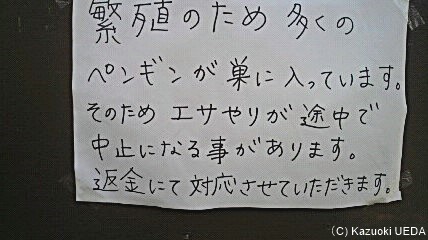 繁殖のため多くの
ペンギンが巣に入っています。
そのためエサやりが途中で
中止になる事があります。
返金にて対応させていただきます。
(C) Kazuoki UEDA